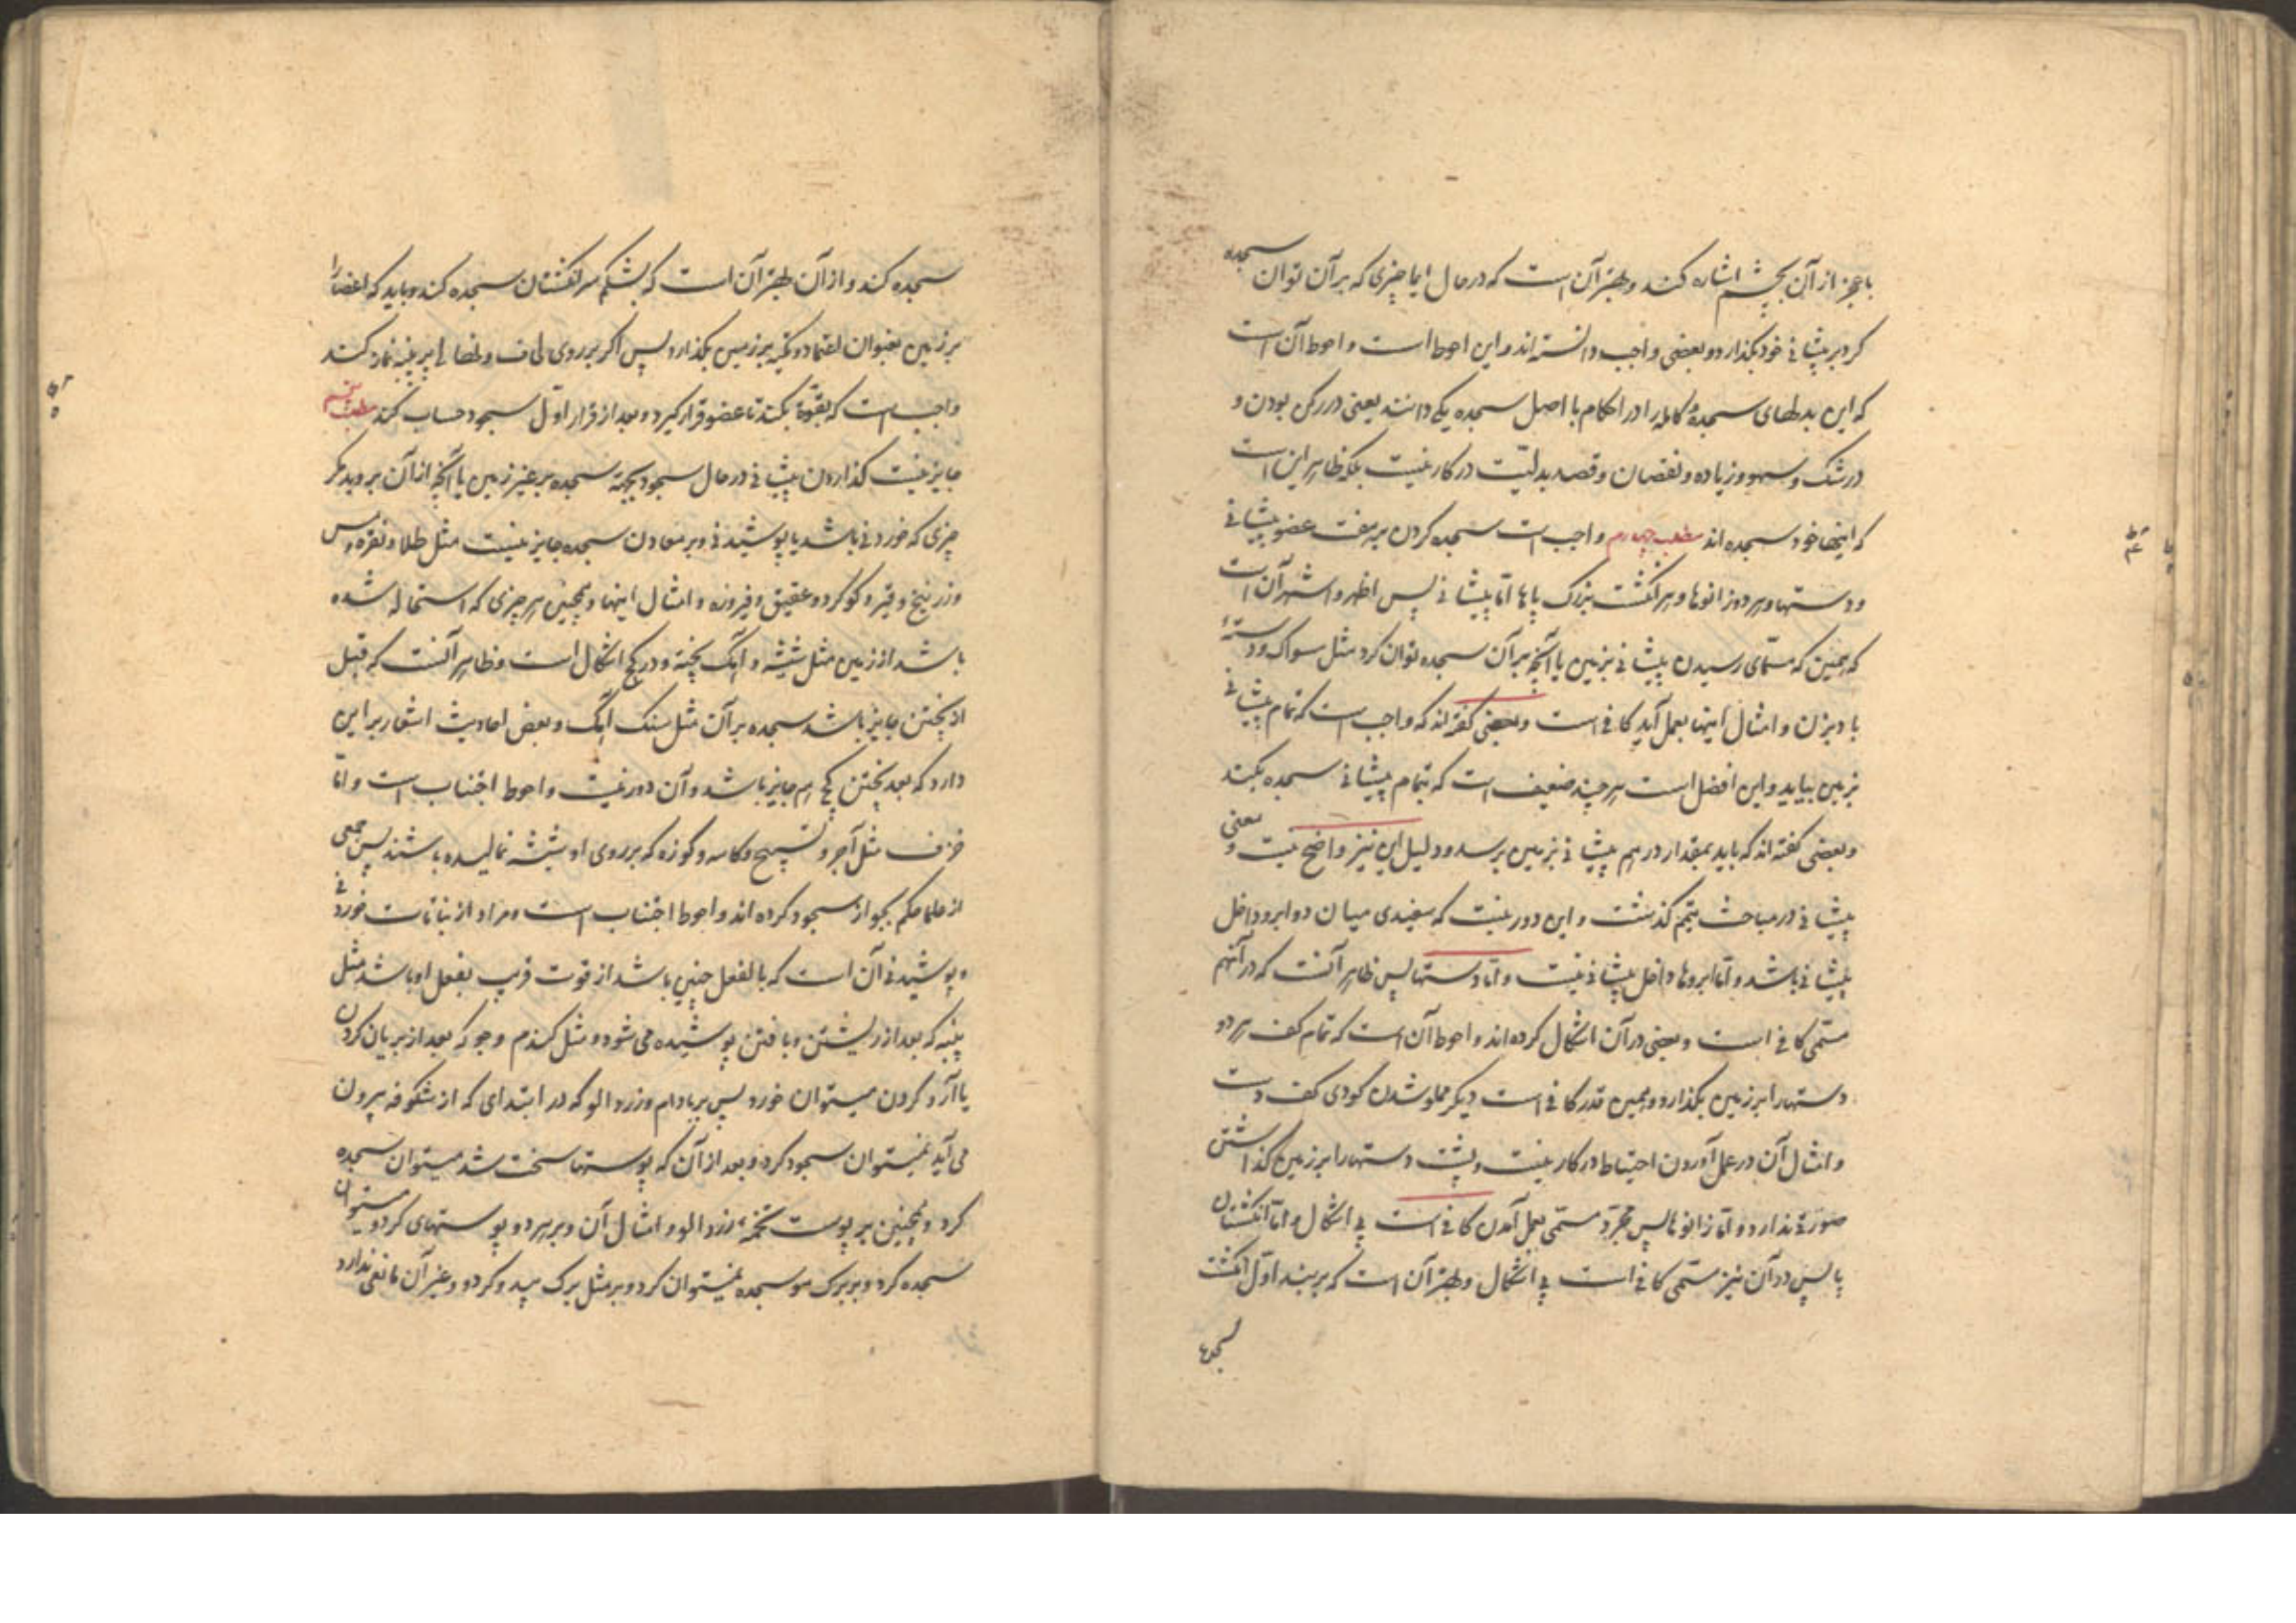 با عجز از آن بچشم اشاره کند و بهتر آن است که در حال ایما چیزی که بر آن توان سجده
کرد بر پیشانی خود بگذارد و بعضی واجب دانسته‌اند و این احوط است و احوط آن است
که این بدلهای سجده و کامله را در احکام با اصل سجده یکی دانند یعنی در رکن بودن و
در شک و سهو و زیاده و نقصان و قصد بدلیّت در کار نیست بلکه ظاهر این است
که اینها خود سجده‌اند مطلب چهارم واجب است سجده کردن بر هفت عضو پیشانی
و دستها و هر دو زانوها و هر انگشت بزرگ پاها امّا پیشانی پس اظهر و اشهر آن است
که همین که مسمّای رسیدن پیشانی بزمین یا آنچه بر آن سجده توان کرد مثل سواک و دستهٔ
بادبزن و امثال اینها بعمل آید کافی است و بعضی گفته‌اند که واجب است که تمام پیشانی
بزمین بیاید و این افضل است هر چند ضعیف است که بتمام پیشانی سجده بکند
و بعضی گفته‌اند که باید بمقدار درهم پیشانی بزمین برسد و دلیل این نیز واضح نیست و معنی
پیشانی در مباحث تیمّم گذشت و این دور نیست که سفیدی میان دو ابرو داخل
پیشانی باشد و امّا ابروها داخل پیشانی نیست و امّا دستها پس ظاهر آنست که در آنهم
مسمّی کافی است و بعضی در آن اشکال کرده‌اند و احوط آن است که تمام کف هر دو
دستها را بر زمین بگذارد و همین قدر کافی است دیگر مملو شدن گودی کف دست
و امثال آن در عمل آوردن احتیاط در کار نیست و پشت دستها را بر زمین گذاشتن
صورتی ندارد و امّا زانوها پس مجرّد مسمّی بعمل آمدن کافی است بی اشکال و امّا انگشتان
پا پس در آن نیز مسمّی کافی است بی اشکال و بهتر آن است که بر بند اوّل انگشت
سجده
سجده کند و از آن بهتر آن است که بشکم سر انگشتان سجده کند و باید که اعضا را
بر زمین بعنوان اعتماد و تکیه بر زمین بگذارد پس اگر بر روی لحاف و نهالی پر پنبه نماز کند
واجب است که بقوة بکند تا عضو قرار گیرد و بعد از قرار اوّل سجود حساب کند مطلب پنجم
جایز نیست گذاردن پیشانی در حال سجود بجهة سجده بر غیر زمین یا آنچه از آن بروید مگر
چیزی که خوردنی باشد یا پوشیدنی و بر معادن سجده جایز نیست مثل طلا و نقره و مس
و زرنیخ و قیر و گوگرد و عقیق و فیروزه و امثال اینها و همچنین هر چیزی که استحاله شده
باشد از زمین مثل شیشه و آهک پخته و در گچ اشکال است و ظاهر آنست که قبل
از پختن جایز باشد سجده بر آن مثل سنک آهک و بعض احادیث اشعار بر این
دارد که بعد پختن گچ هم جایز باشد و آن دور نیست و احوط اجتناب است و امّا
خزف مثل آجر و تسبیح و کاسه و کوزه که بر روی او شیشه نمالیده باشند پس جمعی
از علما حکم بجواز سجود کرده‌اند و احوط اجتناب است و مراد از نباتات خوردنی
و پوشیدنی آن است که بالفعل چنین باشد از قوت قریب بفعل او باشد مثل
پنبه که بعد از ریشتن و بافتن پوشیده می شود و مثل گندم و جو که بعد از بریان کردن
یا آرد کردن میتوان خورد پس بر بادام و زردالو که در ابتدای که از شکوفه بیرون
می آید نمیتوان سجود کرد و بعد از آن که پوستها سخت شد میتوان سجده
کرد و همچنین بر پوست تخمهٔ زردالو و امثال آن و بر هر دو پوستهای گردو میتوان
سجده کرد و بر برک مو سجده نمیتوان کرد و بر مثل برک بید و گردو و غیر آن مانعی ندارد